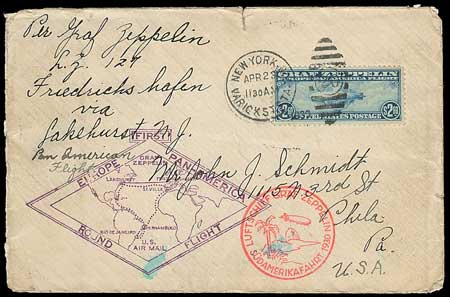 Per Graf Zeppelin
L.Z. 127
Friedrichshafen
via
Lakehurst N.J.
Pan American
Flight
NEW YORK, N.Y.
APR 23
1130 AM
VARICK STA.
GRAF ZEPPELIN
EUROPE PAN AMERICA FLIGHT
$2.60
$2.60
UNITED STATES POSTAGE
FIRST
EUROPE
PAN AMERICA
ROUND
FLIGHT
GRAF ZEPPELIN
LAKEHURST
SEVILLE
RIO DE JANEIRO
PERNAMBUCO
U.S.
AIR MAIL
Mr. John J. Schmidt
1115 N 3rd St
Phila
Pa.
U.S.A.
LUFTSCHIFF GRAF ZEPPELIN
SÜDAMERIKAFAHRT 1930